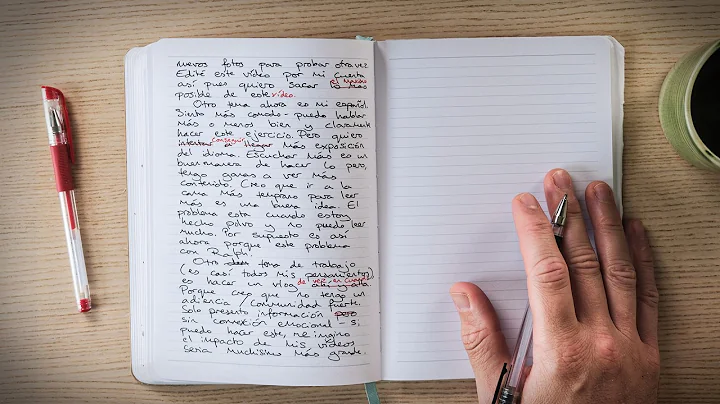 nuevos fotos para probar otra vez.
Edité este video por mi cuenta
así pues quiero sacar lo más el máximo
posible de este video.
Otro tema ahora es mi español.
Siento más comodo - puedo hablar
más o menos bien y claramente
hacer este ejercicio. Pero quiero
intentar a llegar conseguir más exposición
del idioma. Escuchar más es un
buen manera de hacer lo pero,
tengo ganas a ver más
contenido. Creo que ir a la
cama más temprano para leer
más es una buena idea. El
problema esta cuando estoy
hecho polvo y no puedo leer
mucho. Por supuesto es así
ahora porque este problema
con Ralph.
Otro tema de trabajo
(es casí todos mis pensamientos)
es hacer un vlog de vez en cuando
Porque creo que no tengo un
adiencia / comunidad fuerte.
Solo presento información pero
sin conexión emocional - si
puedo hacer este, me imgino
el impacto de mis videos
seria muchisimo más grande.